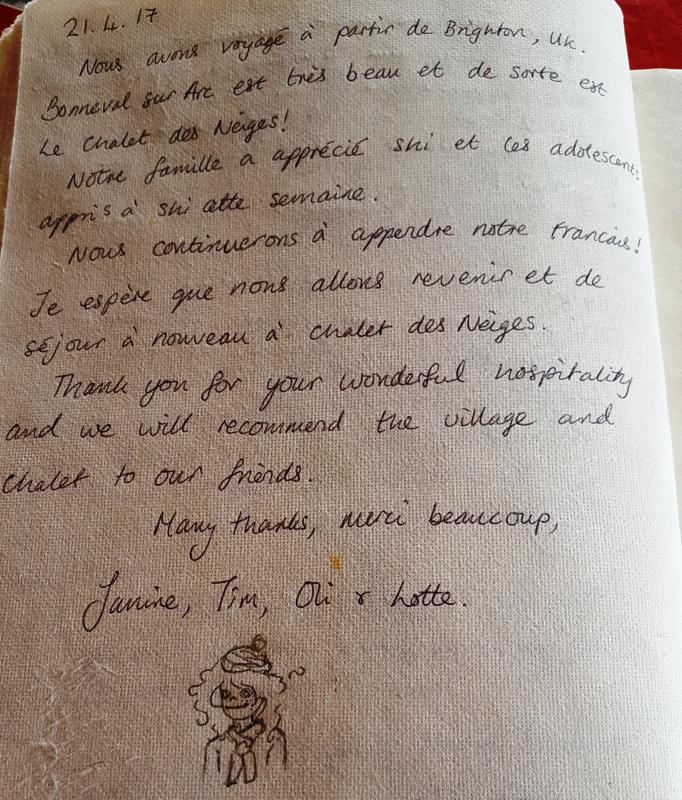 21.4.17
Nous avons voyagé à partir de Brighton, UK.
Bonneval sur Arc est très beau et de sorte est
Le Chalet des Neiges!
Notre famille a apprécié ski et les adolescents
appris à ski cette semaine.
Nous continuerons à appendre notre Francais!
Je espère que nous allons revenir et de
séjour à nouveau à Chalet des Neiges.
Thank you for your wonderful hospitality
and we will recommend the village and
Chalet to our friends.
Many thanks, merci beaucoup,
Janine, Tim, Oli & Lotte.